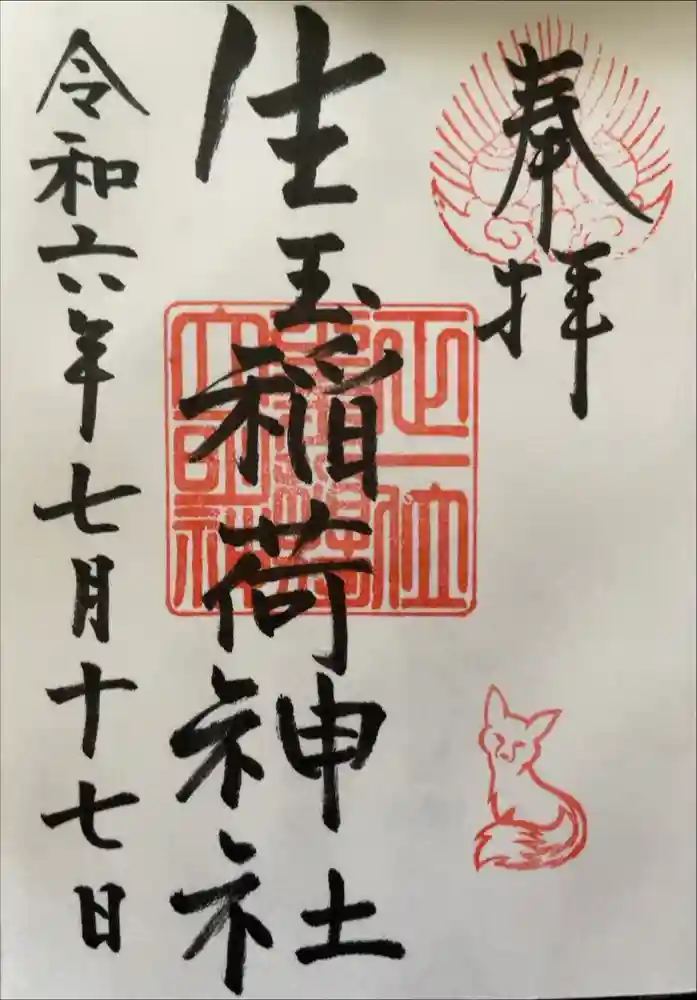 奉拝
生玉稲荷神社
正一位
令和六年七月十七日